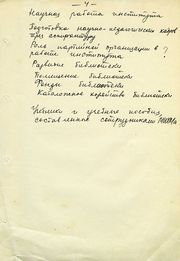 — 4 —
Научная работа института
Подготовка научно-педагогических кадров
через аспирантуру
Роль партийной организации в ?
работе института
Развитие библиотеки
Помещение библиотеки
Фонды библиотеки
Каталожное хозяйство библиотеки
Учебники и учебные пособия,
составленные сотрудниками